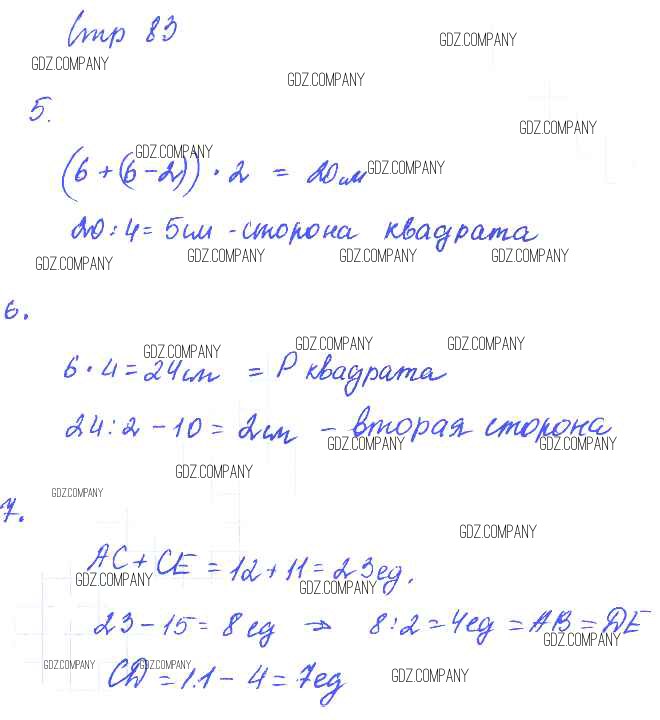 Стр 83
GDZ.COMPANY GDZ.COMPANY
GDZ.COMPANY
5.
GDZ.COMPANY
GDZ.COMPANY GDZ.COMPANY
(6 + (6 - 2)) · 2 = 20 см
20 : 4 = 5 см - сторона квадрата
GDZ.COMPANY GDZ.COMPANY GDZ.COMPANY GDZ.COMPANY
6.
GDZ.COMPANY GDZ.COMPANY GDZ.COMPANY
6 · 4 = 24 см = P квадрата
24 : 2 - 10 = 2 см - вторая сторона
GDZ.COMPANY GDZ.COMPANY
GDZ.COMPANY
GDZ.COMPANY
7.
GDZ.COMPANY
AC + CE = 12 + 11 = 23 ед.
GDZ.COMPANY GDZ.COMPANY
23 - 15 = 8 ед ⇒ 8 : 2 = 4 ед = AB = DE
GDZ.COMPANY
GDZ.COMPANY GDZ.COMPANY GDZ.COMPANY
CD = 11 - 4 = 7 ед